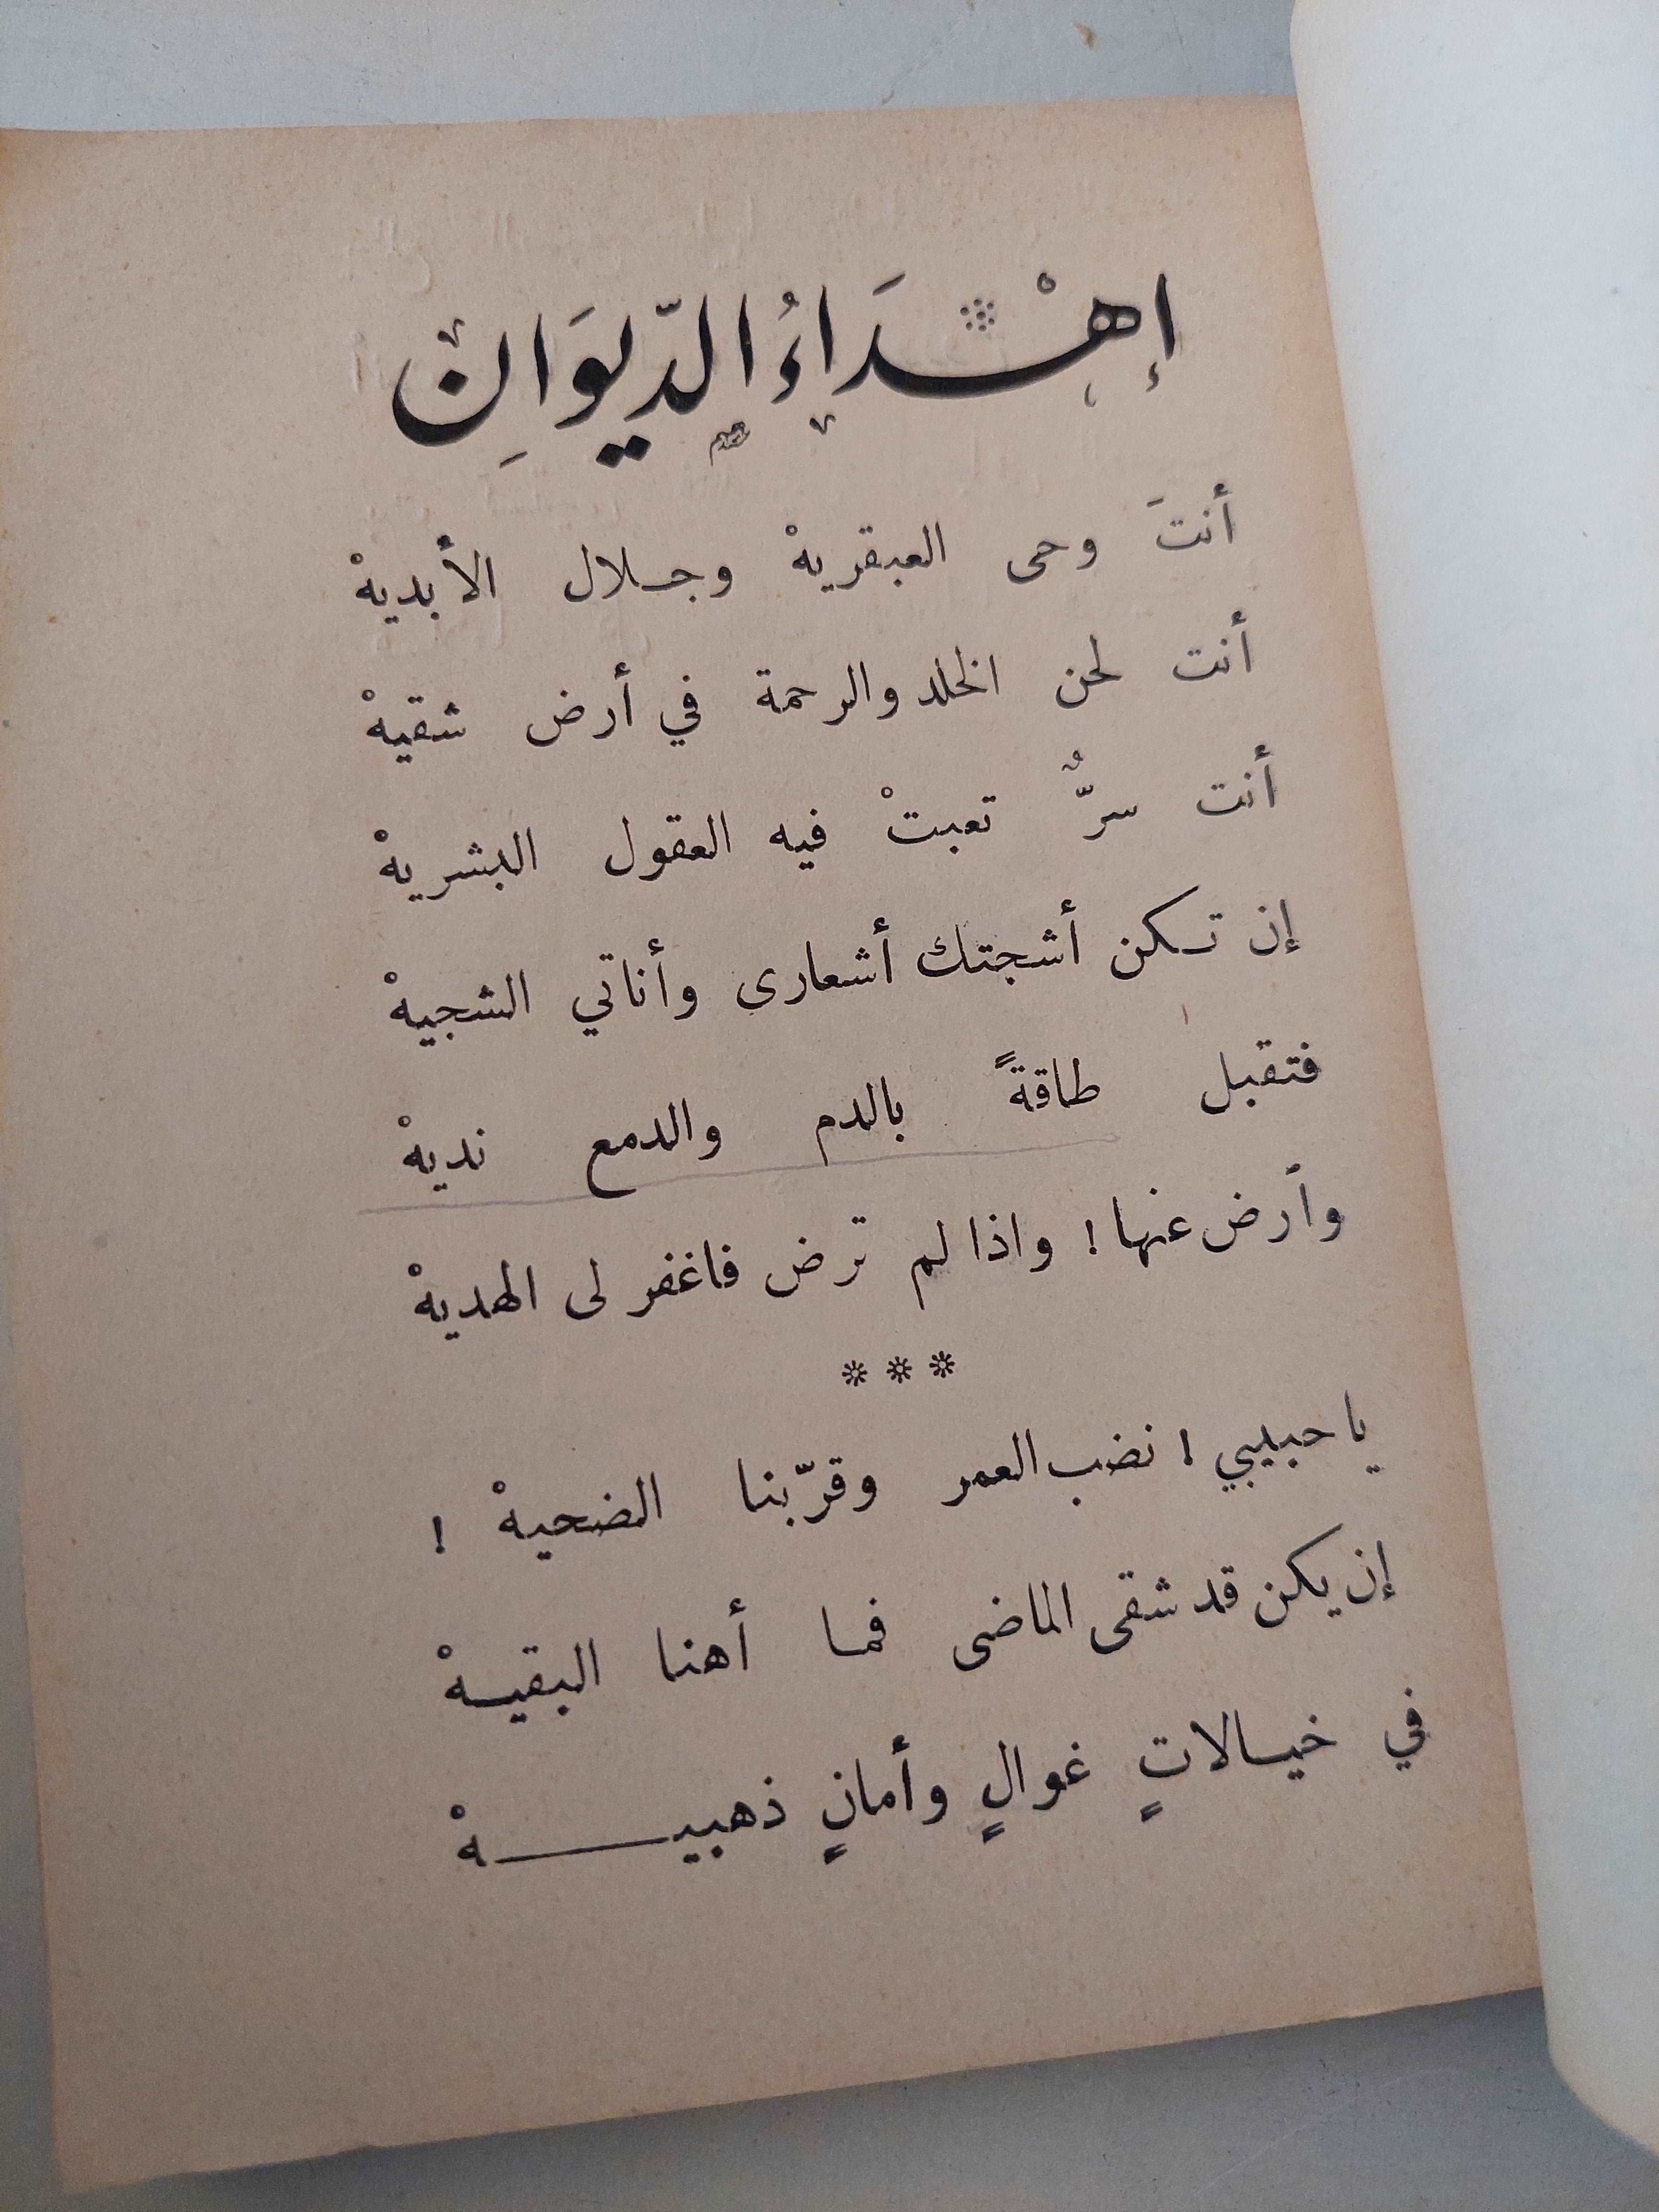 إِهْدَاءُ الدِّيوَانِ
أنتَ وحى العبقريهْ وجلال الأبديهْ
أنت لحن الخلد والرحمة في أرض شقيهْ
أنت سرٌّ تعبتْ فيه العقول البشريهْ
إن تكن أشجتك أشعارى وأناتي الشجيهْ
فتقبل طاقةً بالدم والدمع نديهْ
وأرض عنها! واذا لم ترض فاغفر لى الهديهْ
***
يا حبيبي! نضب العمر وقرّبنا الضحيهْ!
إن يكن قد شقى الماضى فما أهنا البقيهْ
في خيالاتٍ غوالٍ وأمانٍ ذهبيهْ